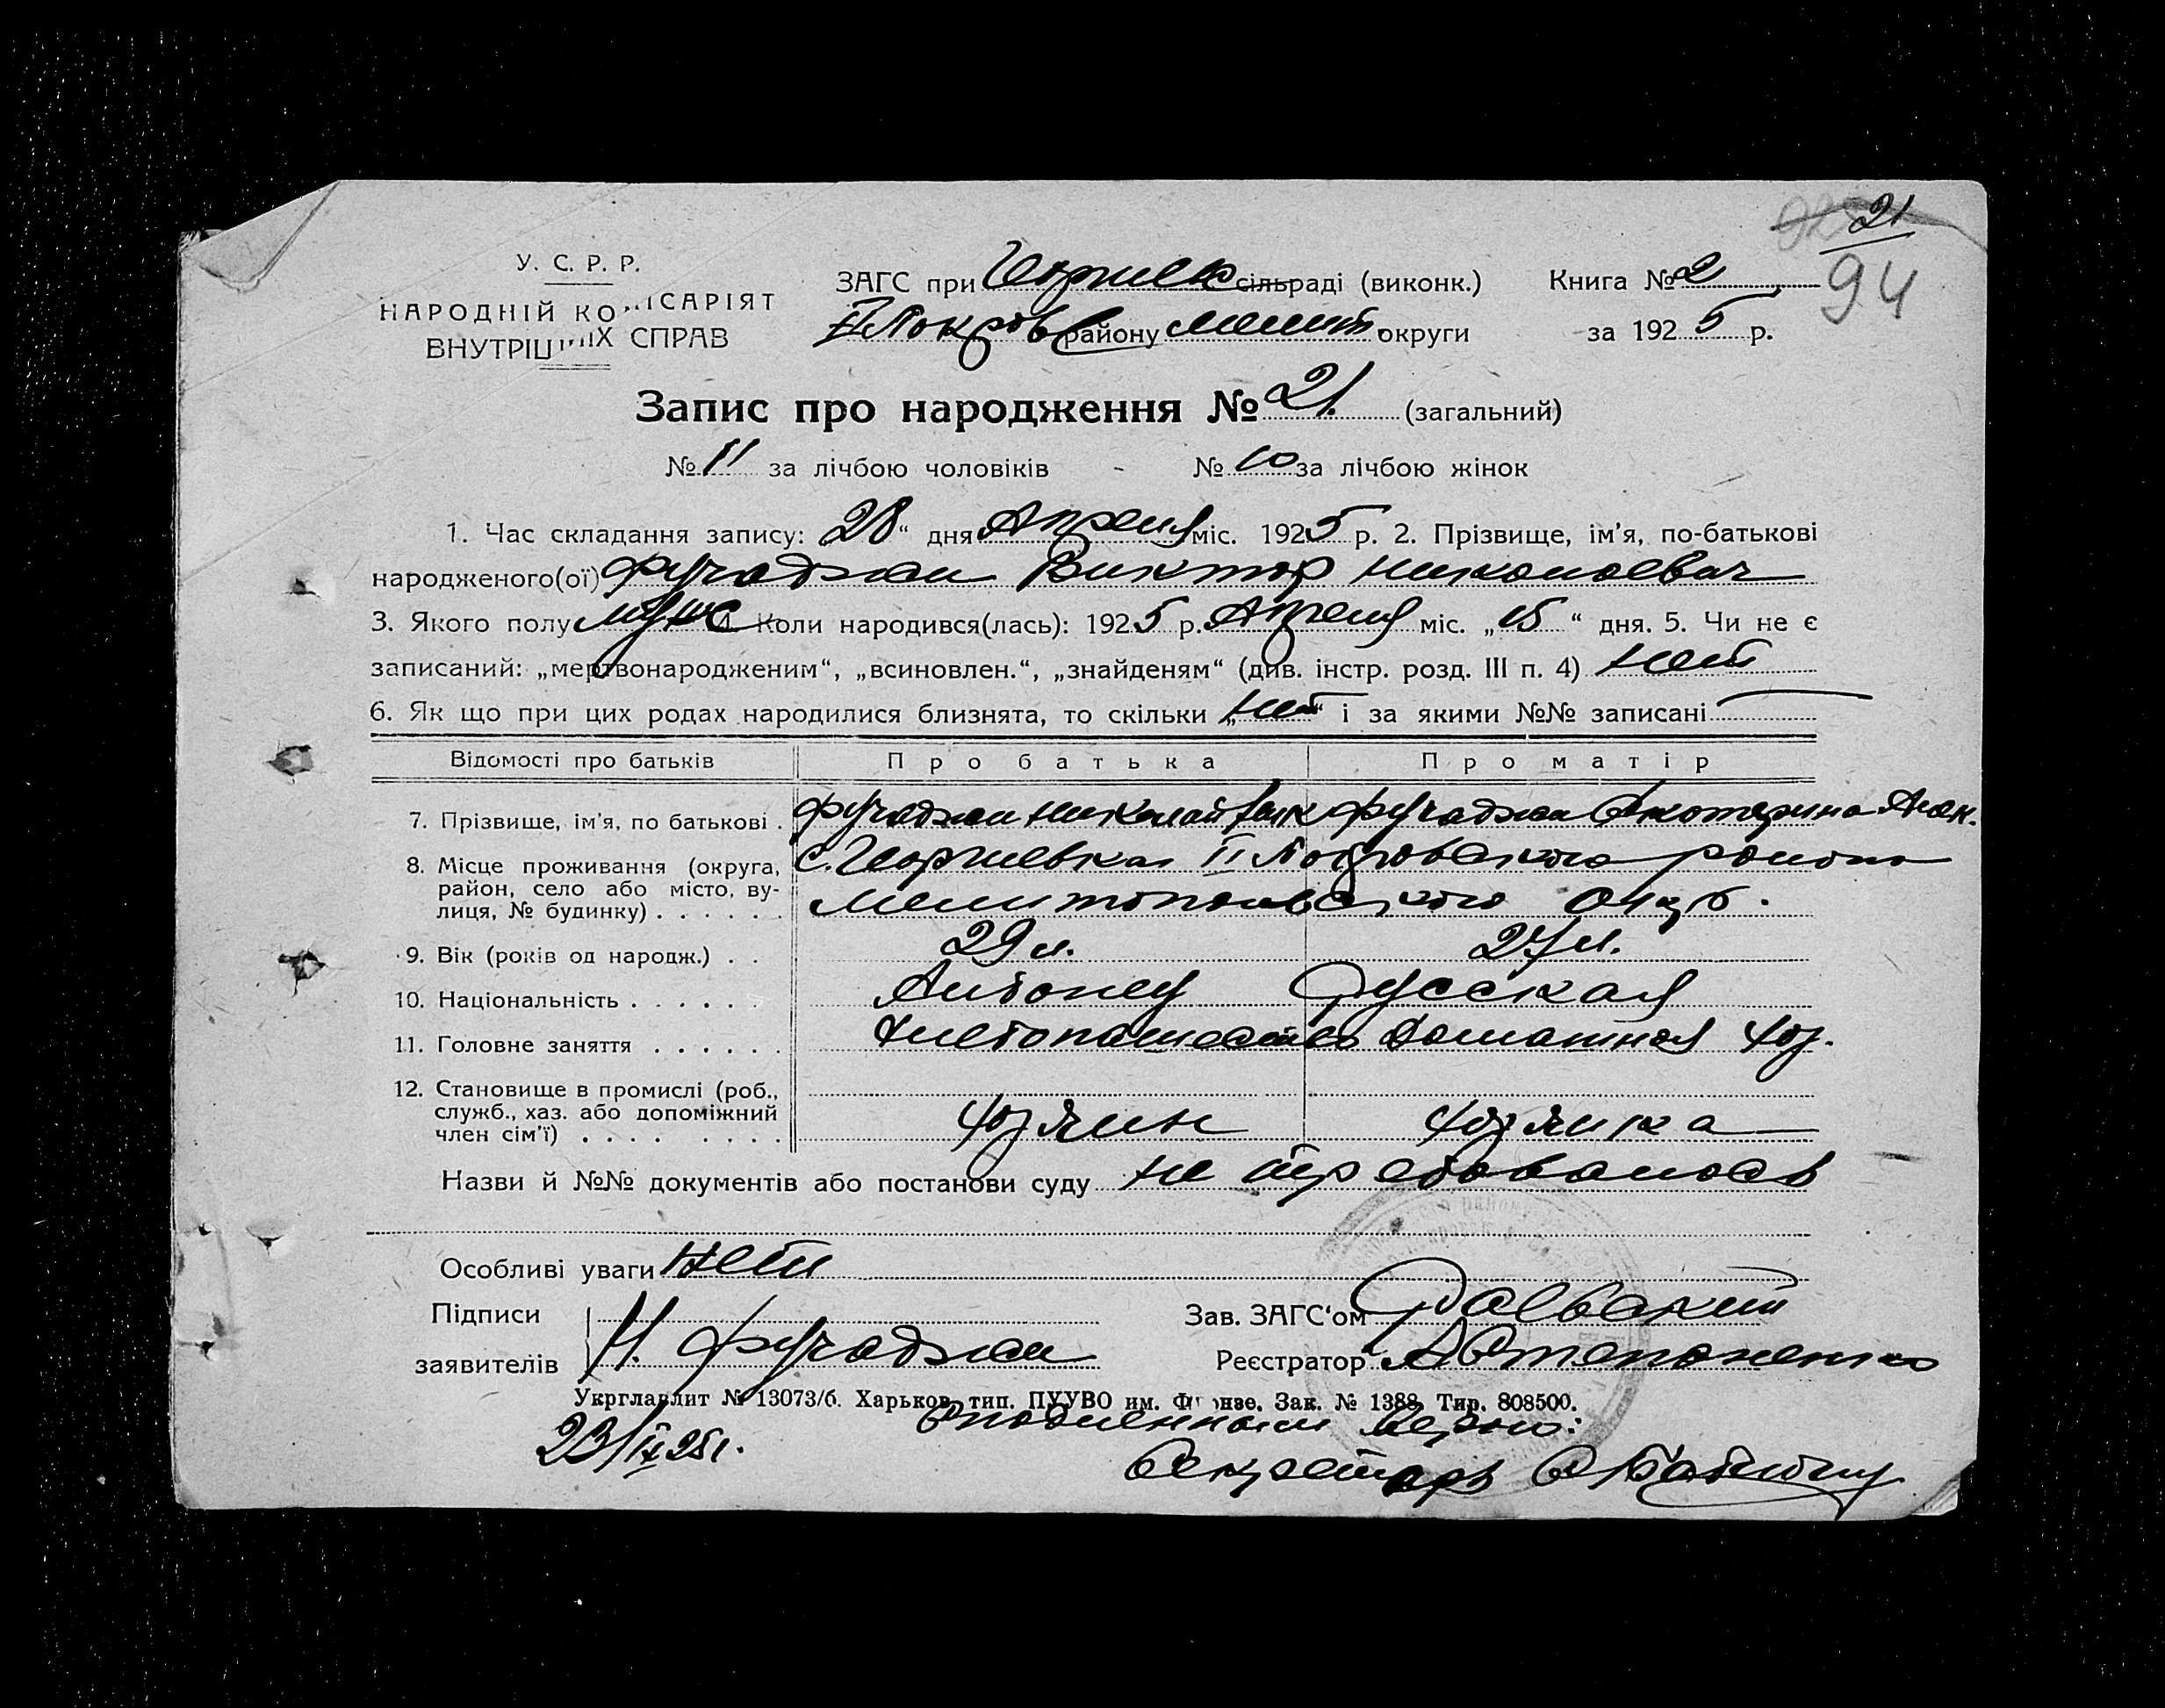 21
94
У. С. Р. Р.
НАРОДНІЙ КОМІСАРІЯТ
ВНУТРІШНІХ СПРАВ
ЗАГС при Георгиев сільраді (виконк.)
II Покров району Мелит. округи
Книга № 2
за 1925 р.
Запис про народження № 21. (загальний)
№ 11 за лічбою чоловіків - № 10 за лічбою жінок
1. Час складання запису: 28 “ дня Апреля міс. 1925 р. 2. Прізвище, ім’я, по-батькові
народженого(ої) Фучаджи Виктор Николаевич
3. Якого полу муж 4. Коли народився(лась): 1925 р. Апреля міс. „ 15 “ дня. 5. Чи не є
записаний: „мертвонародженим“, „всиновлен.“, „знайденям“ (див. інстр. розд. III п. 4) нет
6. Як що при цих родах народилися близнята, то скільки „ нет “ і за якими №№ записані —
Відомості про батьків Про батька Про матір
7. Прізвище, ім’я, по батькові . Фучаджи Николай Фучаджи Екатерина
8. Місце проживання (округа, с. Георгиевка II Покровского района
район, село або місто, ву-
лиця, № будинку) . . . . . . Мелитопольского округ.
9. Вік (років од народж.) . . 29 л. 27 л.
10. Національність . . . . . . Албонец Русская
11. Головне заняття . . . . . . Хлебопашество Домашняя хоз.
12. Становище в промислі (роб.,
служб., хаз. або допоміжний
член сім’ї) . . . . . . . . хозяин хозяйка
Назви й №№ документів або постанови суду не требовалось
Особливі уваги нет
Підписи
заявителів Н. Фучаджи
Зав. ЗАГС‘ом
Реєстратор А Степаненко
Укрглавлит № 13073/б. Харьков, тип. ПУУВО им. Фрунзе. Зак. № 1388. Тир. 808500.
С подленным верно:
23/IX 25 г.
Секретарь